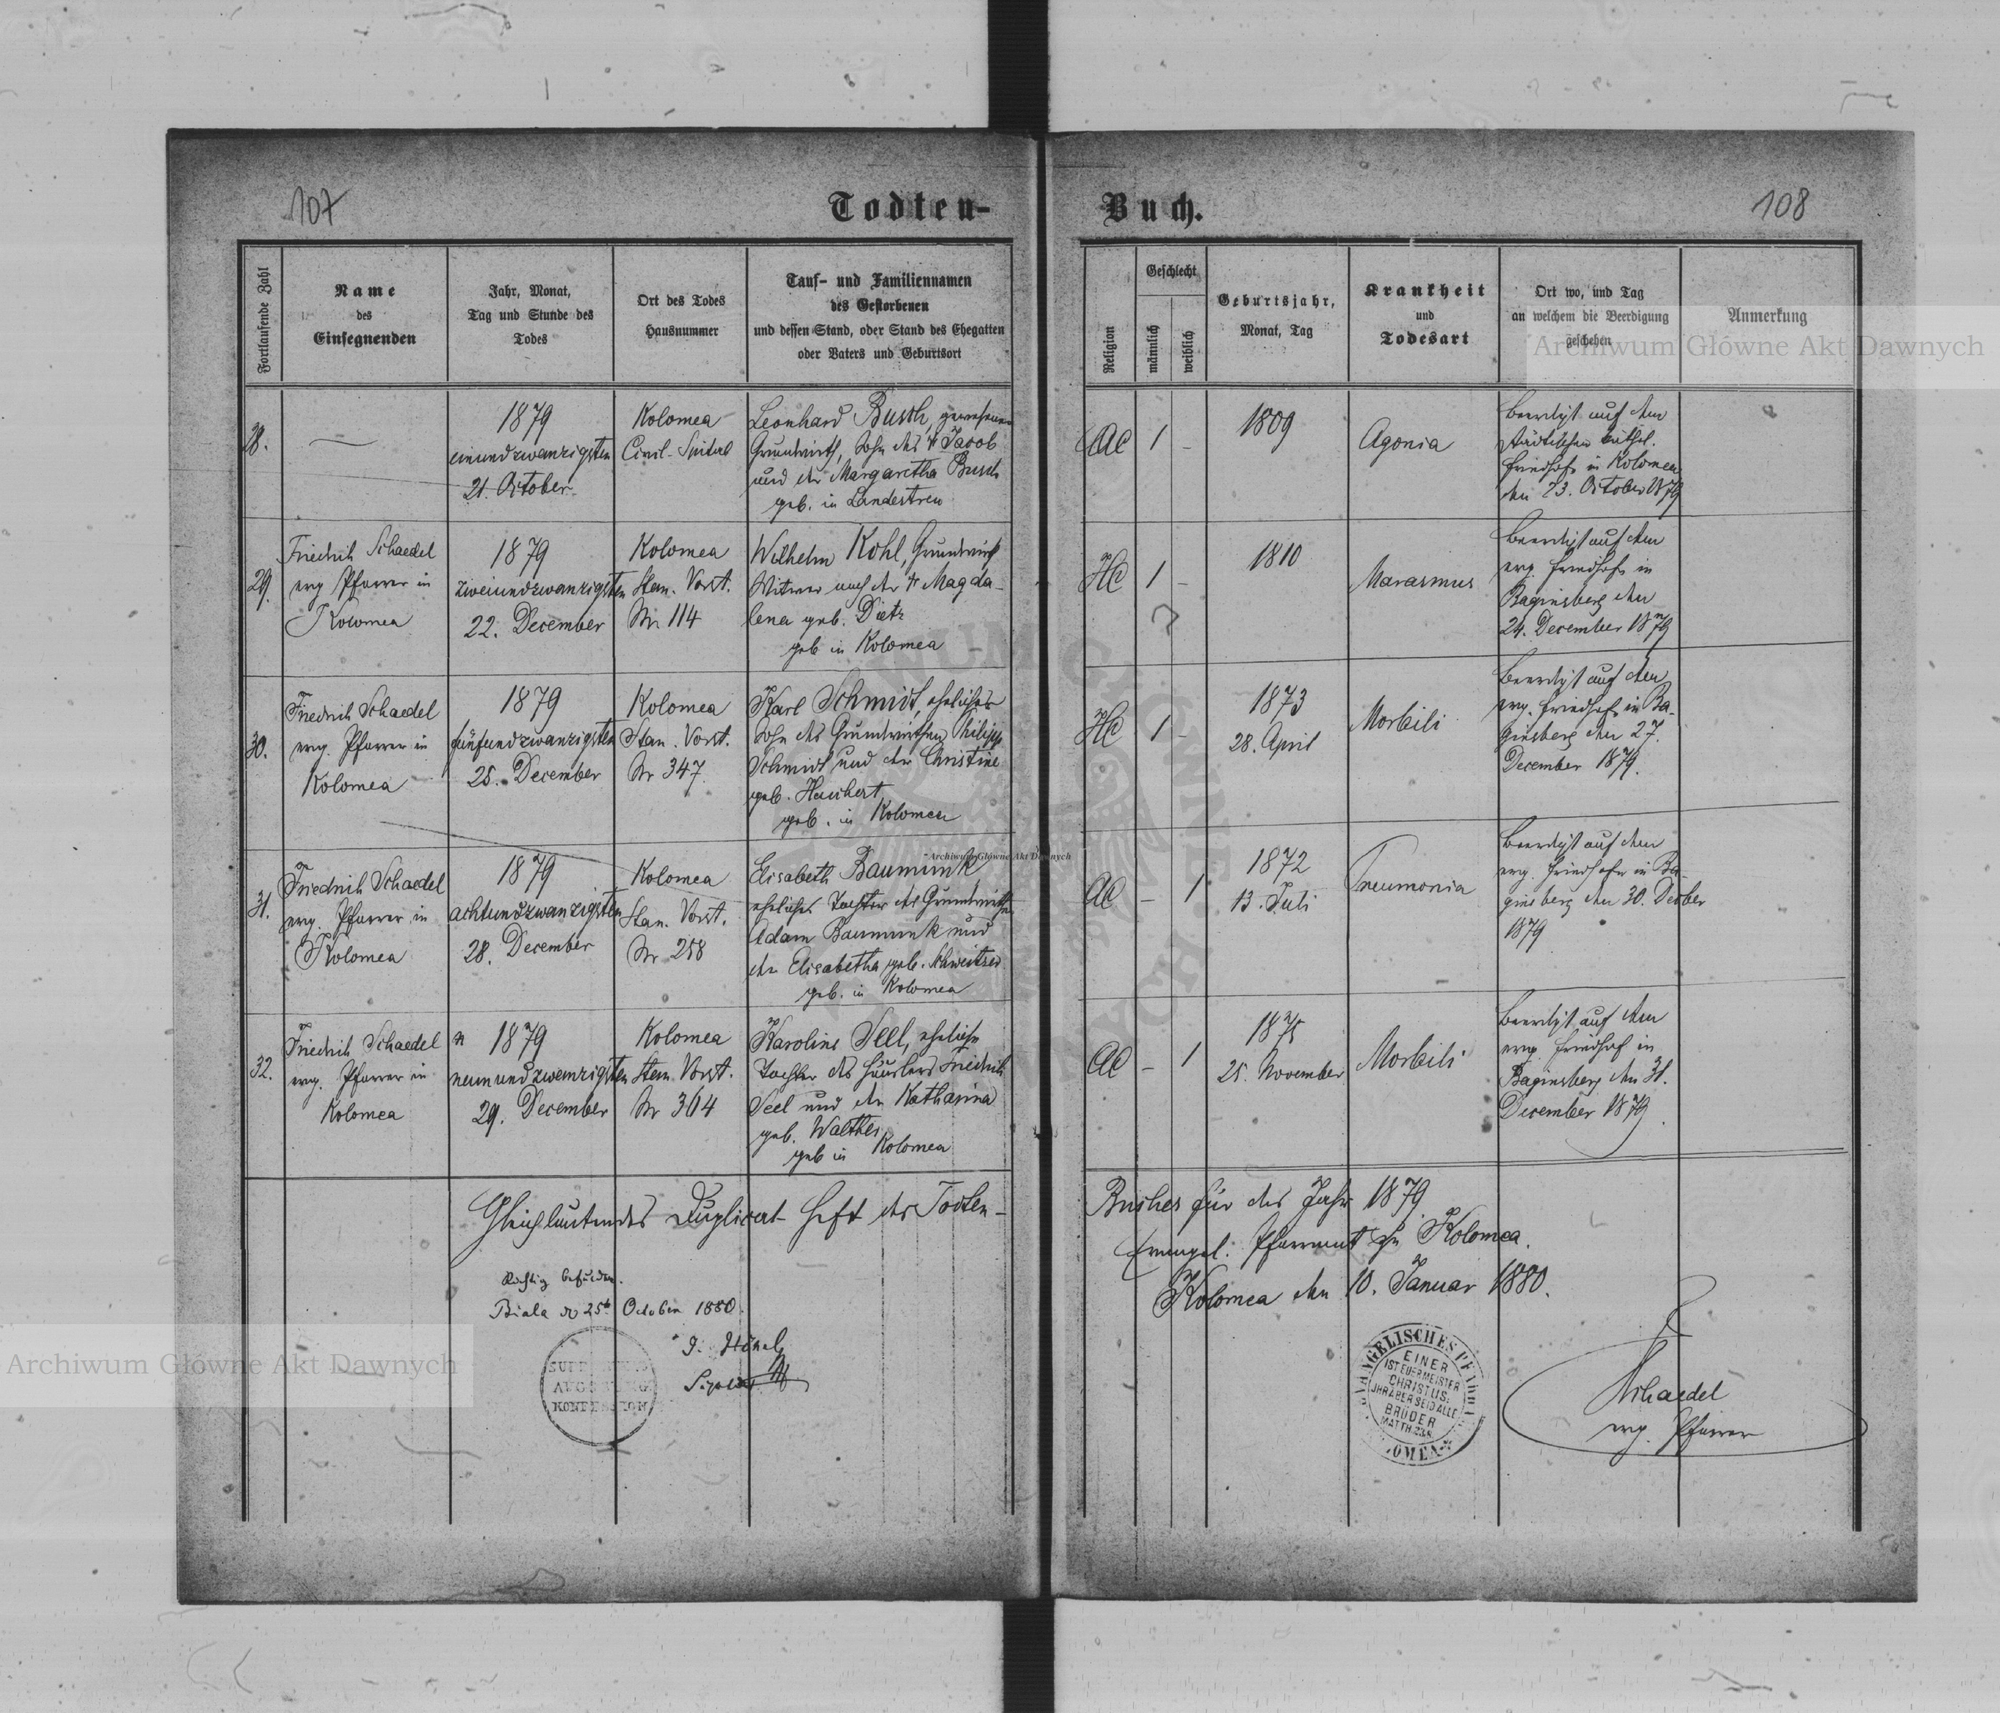 107
Todten-
Fortlaufende Zahl
Name
des
Einsegnenden
Jahr, Monat,
Tag und Stunde des
Todes
Ort des Todes
Hausnummer
Tauf- und Familiennamen
des Gestorbenen
und dessen Stand, oder Stand des Ehegatten
oder Vaters und Geburtsort
28.
1879
einundzwanzigsten
21. October
Kolomea
Civil-Spital
Leonhard Busch, gewesener
Grundwirth, Sohn des † Jacob
und der Margaretha Busch
geb. in Landestreu
29.
Friedrich Schaedel
evg. Pfarrer in
Kolomea
1879
zweiundzwanzigsten
22. December
Kolomea
Stan. Vorst.
Nr. 114
Wilhelm Kohl, Grundwirth
Witwer nach der † Magda-
lena geb. Dietz
geb. in Kolomea
30.
Friedrich Schaedel
evg. Pfarrer in
Kolomea
1879
fünfundzwanzigsten
25. December
Kolomea
Stan. Vorst.
Nr 347.
Karl Schmidt, ehelicher
Sohn des Grundwirthen Philipp
Schmidt und der Christine
geb. Haubert
geb. in Kolomea
31.
Friedrich Schaedel
evg. Pfarrer in
Kolomea
1879
achtundzwanzigsten
28. December
Kolomea
Stan. Vorst.
Nr 258
Elisabeth Baumunk
eheliche Tochter des Grundwirthen
Adam Baumunk und
der Elisabetha geb. Schweitzer
geb. in Kolomea
32.
Friedrich Schaedel
evg. Pfarrer in
Kolomea
1879
neunundzwanzigsten
29. December
Kolomea
Stan. Vorst.
Nr 304
Karoline Seel, eheliche
Tochter des Häuslers Friedrich
Seel und der Katharina
geb. Walther
geb. in Kolomea
Gleichlautendes Duplicat-Heft des Todten-
Richtig befunden.
Biala d 25t October 1880.
AUGSBURG
KONFESSION
108
Buch.
Religion
Geschlecht
männlich
weiblich
Geburtsjahr,
Monat, Tag
Krankheit
und
Todesart
Ort wo, und Tag
an welchem die Beerdigung
geschehen
Anmerkung
AC
1
-
1809
Agonia
Beerdigt auf dem
städtischen kathol.
Friedhofe in Kolomea
den 23. October 1879
HC
1
-
1810
Marasmus
Beerdigt auf dem
evg. Friedhofe in
Baginsberg den
24. December 1879
HC
1
-
1873
28. April
Morbili
Beerdigt auf dem
evg. Friedhofe in Ba-
ginsberg den 27.
December 1879.
AC
-
1
1872
13. Juli
Pneumonia
Beerdigt auf dem
evg. Friedhofe in Ba-
ginsberg den 30. Decber
1879
AC
-
1
1875
25. November
Morbili
Beerdigt auf dem
evg. Friedhof in
Baginsberg den 31.
December 1879.
Buches für das Jahr 1879.
Evangel. Pfarramt zu Kolomea.
Kolomea den 10. Januar 1880.
EVANGELISCHES PFARRAMT
EINER
IST EUER MEISTER
CHRISTUS,
IHR ABER SEID ALLE
BRÜDER
MATTH. 23.8.
KOLOMEA
Schaedel
evg. Pfarrer
Archiwum Główne Akt Dawnych
Archiwum Główne Akt Dawnych
Archiwum Główne Akt Dawnych